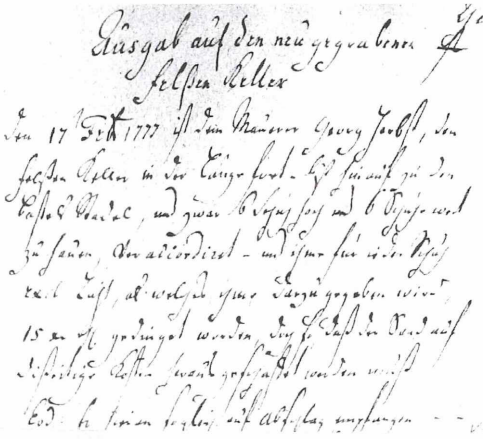 Ausgab auf den neu gegrabenen
Felßen Keller
den 17 Feb 1777 ist dem Maurer Georg Herbst, den
Felßen Keller in der Länge fort - biß hinauf zu der
Stadel, und zwar 6 Schuh hoch und 6 Schuh weit
zu hauen, veraccordiret - und ihme für jeden Schuh
Licht, als welches ihme darzu gegeben wird,
15 xr gedinget worden, doch so daß der Sand auf
Kosten heraus geschafft werden muß
Eod. hieran sogleich auf Abschlag empfangen - -